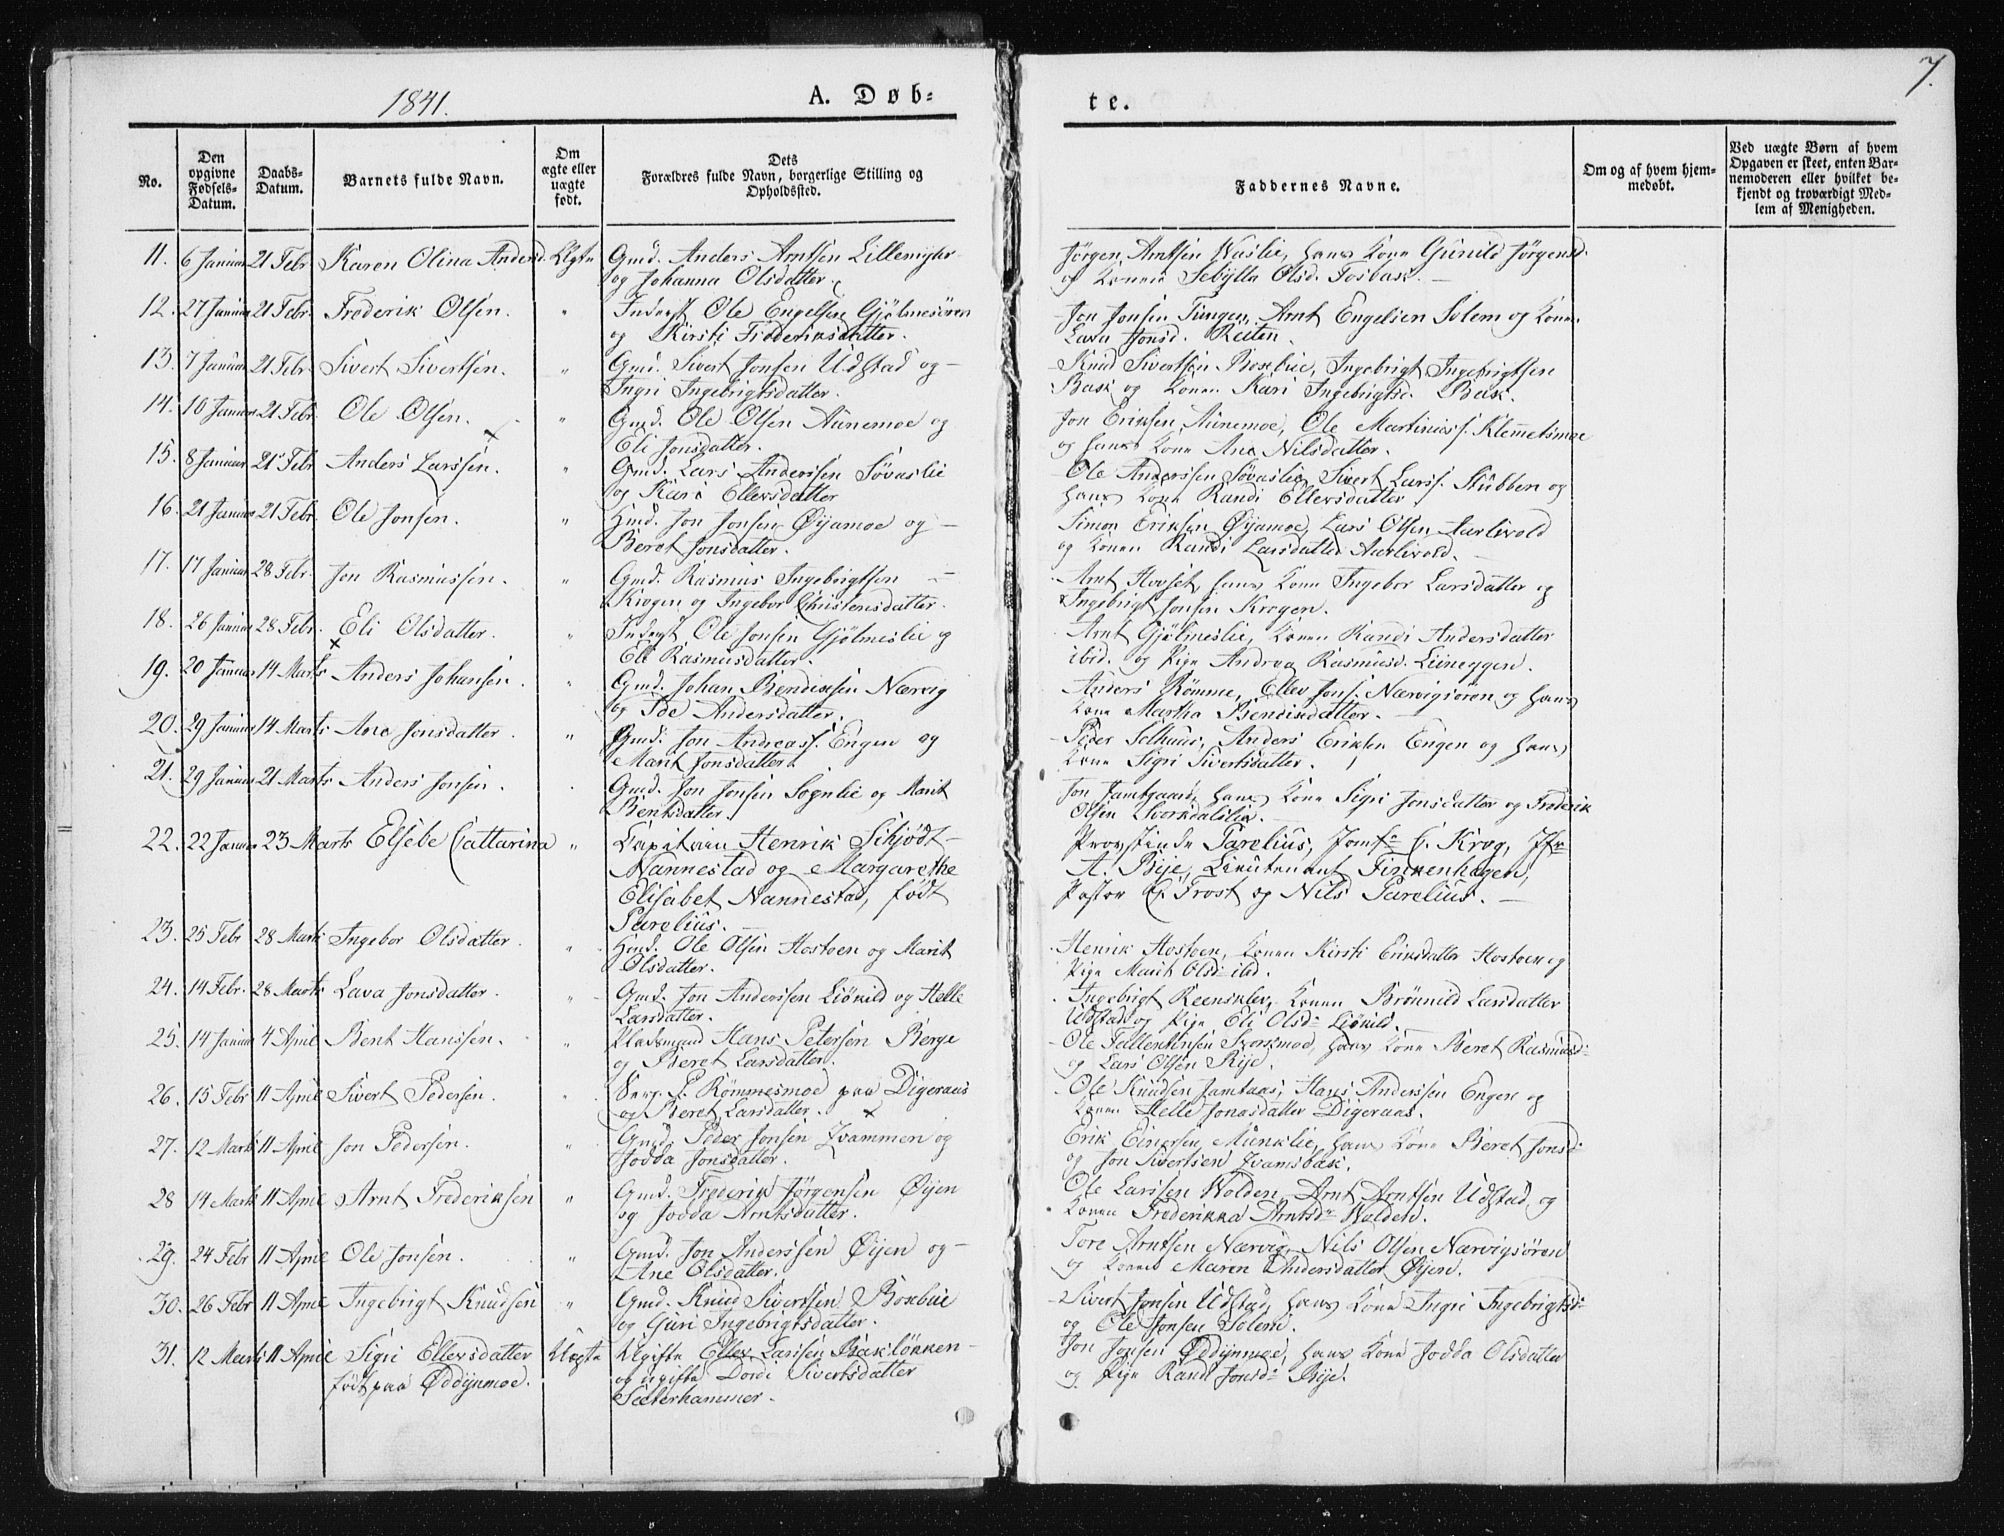 1841.
A. Døb-
te.
7.
No.
Den opgivne Fødsels-Datum.
Daabs-Datum.
Barnets fulde Navn.
Om ægte eller uægte født.
Dets Forældres fulde Navn, borgerlige Stilling og Opholdssted.
Faddernes Navne.
Om og af hvem hjemmedøbt.
Ved uægte Børn af hvem Opgaven er skeet, enten Barnemoderen eller hvilket bekjendt og troværdigt Medlem af Menigheden.
11. 6 Januar 21 Febr. Karen Olina Andersd. Ægte Gmd. Anders Arntsen Lillemyhr
og Johanna Olsdatter
Jørgen Arntsen Waslie, hans Kone Gunild Jørgensd.
og Konen Sebylla Olsd. Fosbak.
12. 27 Januar 21 Febr. Frederik Olsen. " Inderst Ole Engelsen Gjølmesøren
og Kirsti Frederiksdatter.
Jon Jonsen Tungen, Arnt Engelsen Solem og Konen
Lava Jonsd. Reiten.
13. 7 Januar 21 Febr. Sivert Sivertsen. " Gmd. Sivert Jonsen Udstad og
Ingri Ingebrigtsdatter.
Knud Sivertsen Boxbue, Ingebrigt Ingebrigtsen
Bask og Konen Kari Ingebrigtsd. Bask.
14. 10 Januar 21 Febr. Ole Olsen. " Gmd. Ole Olsen Aunemoe og
Eli Jonsdatter.
Jon Eriksen Aunemoe, Ole Martiniuss. Klemetsmoe
og hans Kone Ane Nilsdatter.
15. 8 Januar 21 Febr. Anders Larssen. " Gmd. Lars Anderssen Søvaslie
og Kari Ellevsdatter
Ole Anderssen Søvaslie, Sivert Larss. Stubben og
hans Kone Randi Ellevsdatter
16. 21 Januar 21 Febr. Ole Jonsen. " Hmd. Jon Jonsen Øyamoe og
Beret Jonsdatter.
Simon Eriksen Øyamoe, Lars Olsen Aarlivold
og Konen Randi Larsdatter Aarlivold.
17. 17 Januar 28 Febr. Jon Rasmussen. " Gmd. Rasmus Ingebrigtsen
Krogen og Ingebor Christensdatter.
Arnt Hovset, hans Kone Ingebor Larsdatter og
Ingebrigt Jonsen Krogen.
18. 26 Januar 28 Febr. Eli Olsdatter. " Inderst Ole Jonsen Gjølmeslie og
Eli Rasmusdatter.
Arnt Gjølmeslie, Konen Randi Andersdatter
ibid. og Pige Andrea Rasmusd. Liineggen.
19. 20 Januar 14 Marts Anders Johansen. " Gmd. Johan Bendixsen Nærvig
og Ide Andersdatter.
Anders Rømme, Ellev Jons. Nærvigsøren og hans
Kone Martha Bendixdatter.
20. 29 Januar 14 Marts Ane Jonsdatter. " Gmd. Jon Andreass. Engen og
Marit Jonsdatter.
Peder Solhuus, Anders Eriksen Engen og hans
Kone Sigri Sivertsdatter.
21. 29 Januar 21 Marts Anders Jonsen. " Gmd. Jon Jonsen Sognlie og Marit
Bentsdatter.
Jon Jamtgaard, hans Kone Sigri Jonsdatter og Frederik
Olsen Svorkdalslie.
22. 22 Januar 23 Marts Elsebe Cattarina " Capitain Henrik Schjødt
Nannestad og Margarethe
Elisabet Nannestad, født
Parelius.
Provstinde Parelius, Jomfr C. Krog, Jfr
A. Bije, Lieutenant Finkenhagen,
Pastor C. Frost og Nils Parelius.
23. 25 Febr 28 Marts Ingebor Olsdatter. " Hmd. Ole Olsen Hostoen og Marit
Olsdatter.
Henrik Hostoen, Konen Kirsti Eriksdatter Hostoen og
Pige Marit Olsd. ibd.
24. 14 Febr. 28 Marts Lava Jonsdatter. " Gmd. Jon Anderssen Liøkild og Helle
Larsdatter.
Ingebrigt Reenskler, Konen Brønnild Larsdatter
Udstad og Pige Eli Olsd. Liøkild.
25. 14 Januar 4 April Bent Hanssen. " Pladsmand Hans Petersen Berge
og Beret Larsdatter.
Ole Tellefsen Skorsmoe, hans Kone Beret Rasmusd.
og Lars Olsen Rije.
26. 15 Febr 11 April Sivert Pedersen. " Serg. P. Rømmesmoe paa Digeraas
og Beret Larsdatter.
Ole Knudsen Jamtaas, Hans Anderssen Engen og
Konen Helle Jonasdatter Digeraas.
27. 12 Marts 11 April Jon Pedersen. " Gmd. Peder Jonsen Qvammen og
Jodda Jonsdatter.
Erik Einersen Munklie, hans Kone Beret Jonsd.
og Jon Sivertsen Qvamsbak.
28 14 Marts 11 April Arnt Frederiksen " Gmd. Frederik Jørgensen Øyen
og Jodda Arntsdatter.
Ole Larssen Wolden, Arnt Arntsen Udstad og
Konen Frederikka Arntsdr Wolden.
29. 24 Febr 11 April Ole Jonsen. " Gmd. Jon Anderssen Øijen og
Ane Olsdatter.
Tore Arntsen Nærvig, Nils Olsen Nærvigsøren
og Konen Maren Andersdatter Øijen.
30. 26 Febr 11 April Ingebrigt Knudsen " Gmd. Knud Sivertsen Boxbue
og Guri Ingebrigtsdatter.
Sivert Jonsen Udstad, hans Kone Ingri Ingebrigtsd.
og Ole Jonsen Solem.
31. 12 Marts 11 April Sigri Ellevsdatter Uægte Ugifte Ellev Larssen Bakløkken
født paa Øddynmoe. og ugifte Dordi Sivertsdatter
Sæterhammer.
Jon Jonsen Øddynmoe, hans Kone Jodda Olsdatter
og Pige Randi Jonsd. Bije.